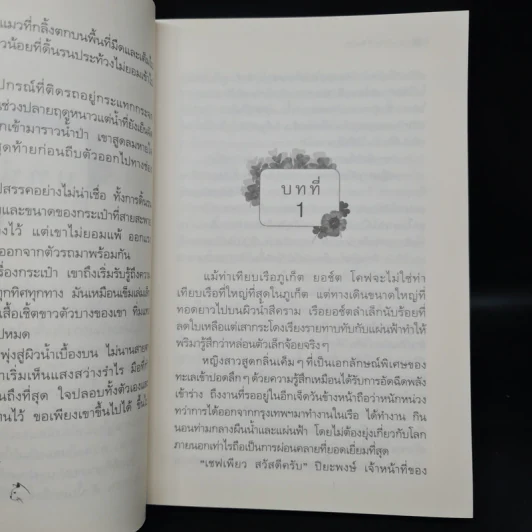 แมวที่กลิ้งตกบนพื้นที่มืดและเต็มไป
วน้อยที่ดิ้นรนประท้วงไม่ยอมเข้า
ปกรณ์ที่ติดรถอยู่กระแทกกระจก
ช่วงปลายฤดูหนาวแต่น้ำที่ยังเย็น
กเข้ามาราวน้ำป่า เขาสูดลมหายใจ
สุดท้ายก่อนถีบตัวออกไปทางช่อง
ปสรรคอย่างไม่น่าเชื่อ ทั้งการดิ้น
และขนาดของกระเป๋าที่สายสะพาย
งไว้ แต่เขาไม่ยอมแพ้ ออกแรง
ออกจากตัวรถมาพร้อมกัน
รื่องกระเป๋า เขาถึงเริ่มรับรู้ถึงความ
ทุกทิศทุกทาง มันเหมือนเข็มเล่ม
เสื้อเชิ้ตขาวตัวบางของเขา ทิ่มแทง
ปหมด
พุ่งสู่ผิวน้ำเบื้องบน ไม่นานสายตา
าเริ่มเห็นแสงสว่างรำไร มือที่
ถึงที่สุด ใจปลอบทั้งตัวเองและ
านไว้ ขอเพียงเขาขึ้นไปได้
บทที่
1
แม้ท่าเทียบเรือภูเก็ต ยอช์ต โคฟจะไม่ใช่ท่า
เทียบเรือที่ใหญ่ที่สุดในภูเก็ต แต่ทางเดินขนาดใหญ่ที่
ทอดยาวไปบนผิวน้ำสีคราม เรือยอช์ตลำเล็กนับร้อยที่
ลดใบเหลือแต่เสากระโดงเรียงรายทาบทับกับแผ่นฟ้าทำให้
พริมารู้สึกว่าหล่อนตัวเล็กจ้อยจริงๆ
หญิงสาวสูดกลิ่นเค็มๆ ที่เป็นเอกลักษณ์พิเศษของ
ทะเลเข้าปอดลึกๆ ด้วยความรู้สึกเหมือนได้รับการอัดฉีดพลัง
เข้าร่าง ถึงงานที่รออยู่ในอีกเจ็ดวันข้างหน้าถือว่าหนักหน่วง
ทว่าการได้ออกจากกรุงเทพฯมาทำงานในเรือ ได้ทำงาน กิน
นอนท่ามกลางผืนน้ำและแผ่นฟ้า โดยไม่ต้องยุ่งเกี่ยวกับโลก
ภายนอกเท่าไรถือเป็นการผ่อนคลายที่ยอดเยี่ยมที่สุด
“เชฟเพียว สวัสดีครับ” ปิยะพงษ์ เจ้าหน้าที่ของ